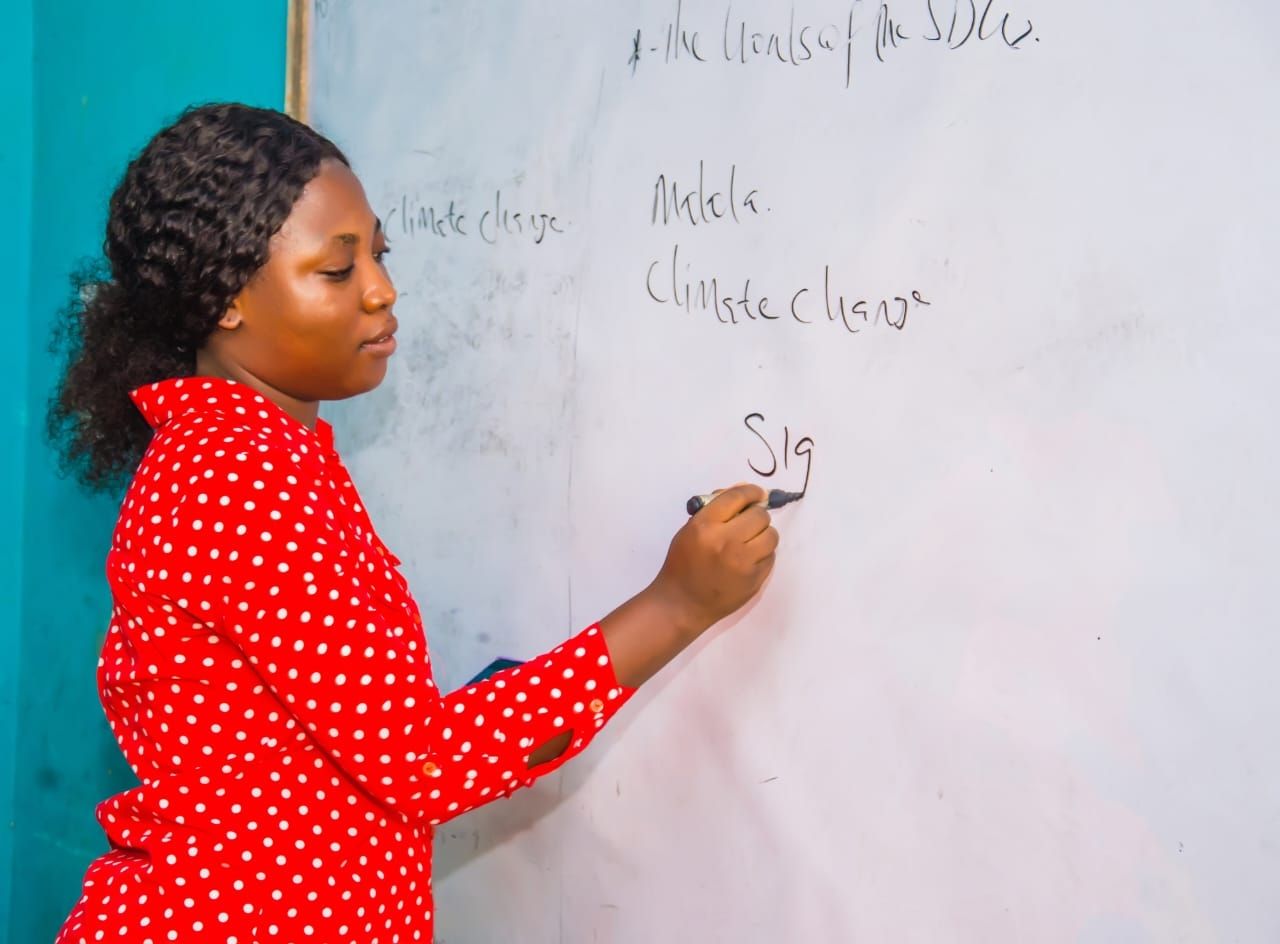 * - The Goals of the SDGs.
Climate change.
Malala.
Climate change
Sig